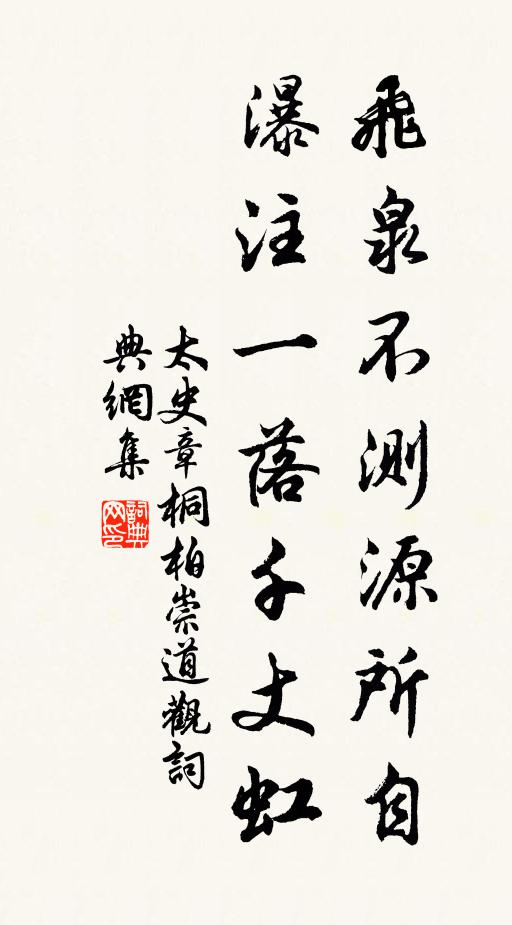 飛泉不測源所自
瀑注一落千丈虹
太史章桐柏崇道觀詞
典網集
詞典网印